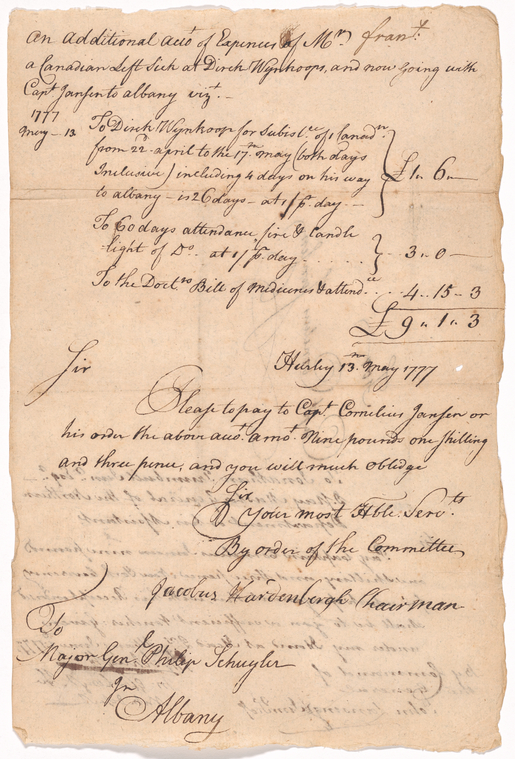 An Additional Acct. of Expences of Mr. frant.
a Canadian Left Sick at Dirck Wynkoops, and now going with
Capt Jansen to albany vizt. —
1777
May — 13 To Dirck Wynkoop for Subisl.ce of 1 Canadn.
from 22d. april to the 17th may (both days
Inclusive) including 4 days on his way
to albany — is 26 days — at 1/ pr. day — £1 „ 6 „ —
To 60 days attendance, fire & Candle
light of Do. — at 1/ pr. day . . . . . . 3 „ 0 —
To the Doctrs Bill of Medicines & attendce . . . 4 „ 15 — 3
£ 9 „ 1 „ 3
Hurley 13th. May 1777
Sir
Please to pay to Capt. Cornelius Jansen or
his order the above acct. amot. Nine pounds one shilling
and three pence, and you will much oblidge
Sir
Your most Hble. Servts
By order of the Committee
Jacobus Hardenbergh Chairman
To
Major Genl. Philip Schuyler
In
Albany